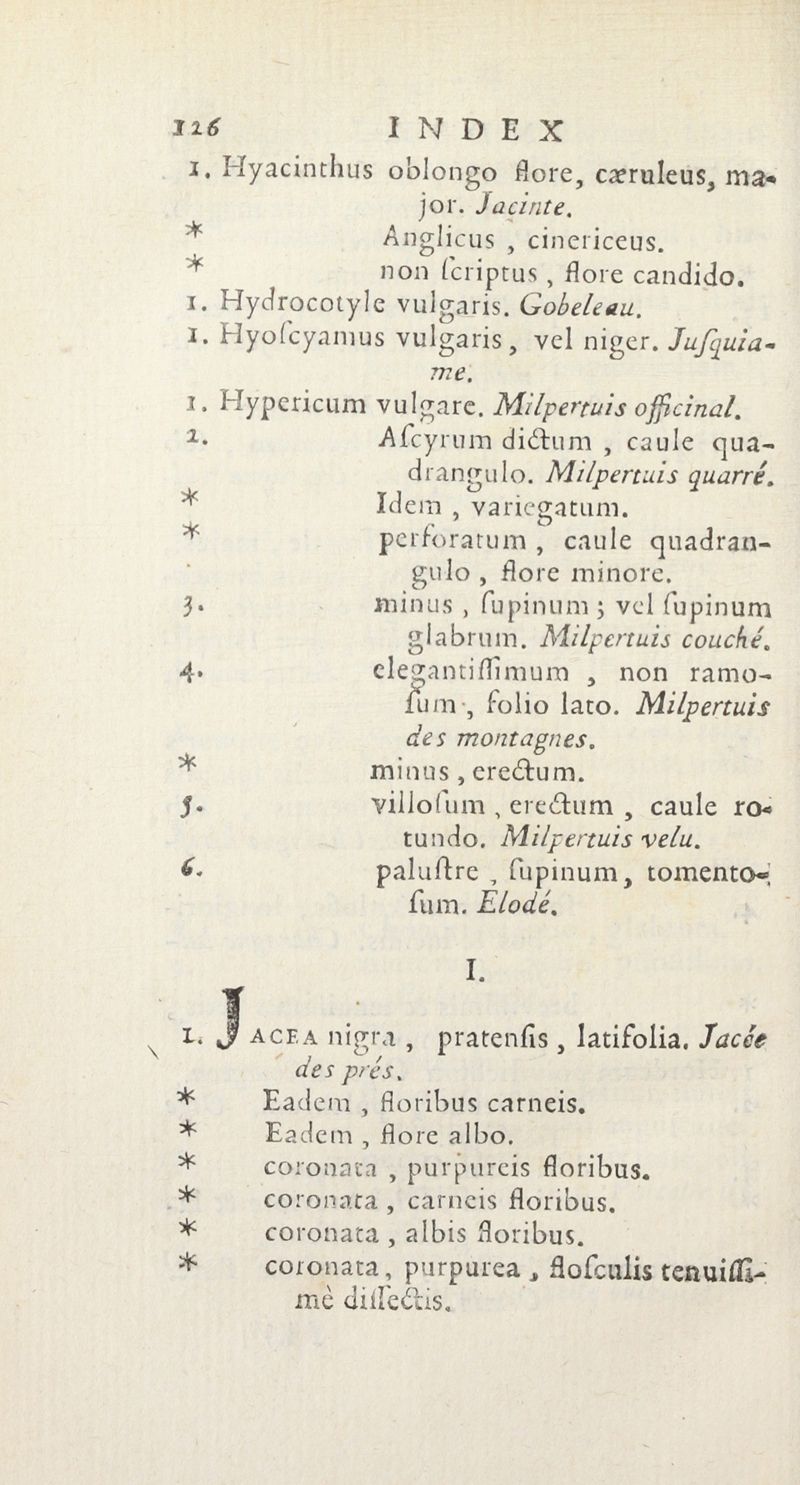 126 INDEX
1. Hyacinthus oblongo flore, cæruleus, ma-
jor. Jacinte.
* Anglicus , cinericeus.
* non ſcriptus , flore candido.
1. Hydrocotyle vulgaris. Gobeleau.
1. Hyoſcyamus vulgaris , vel niger. Juſquia-
me.
1. Hypericum vulgare. Milpertuis officinal.
2. Aſcyrum dictum , caule qua-
drangulo. Milpertuis quarré.
* Idem , variegatum.
* perforatum , caule quadran-
gulo , flore minore.
3. minus , ſupinum ; vel ſupinum
glabrum. Milpertuis couché.
4. elegantiſſimum , non ramo-
ſum , folio lato. Milpertuis
des montagnes.
* minus , erectum.
5. villoſum , erectum , caule ro-
tundo. Milpertuis velu.
6. paluſtre , ſupinum, tomento-
ſum. Elodé.
I.
1. JACEA nigra , pratenſis , latifolia. Jacée
des prés.
* Eadem , floribus carneis.
* Eadem , flore albo.
* coronata , purpureis floribus.
* coronata , carneis floribus.
* coronata , albis floribus.
* coronata, purpurea , floſculis tenuiſſi-
mè diſſectis.